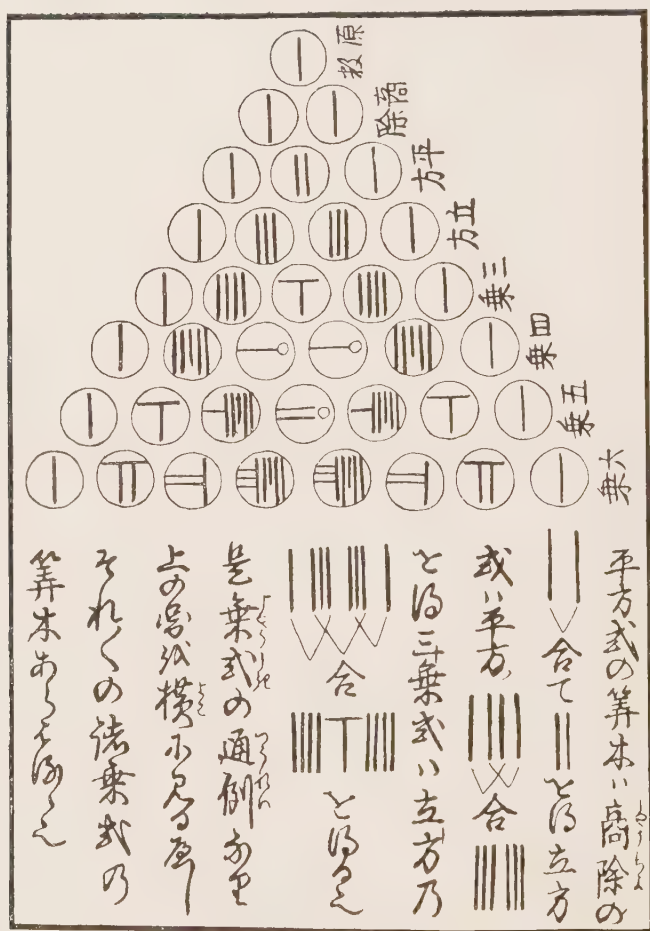 原数
商除
平方
立方
三乗
四乗
五乗
六乗
平方式の筭木ハ商除の
合て とる立方
或ハ平方 合
と得三乗式ハ立方乃
合 と得る也
是乗式の通例なり
上の図を横に見る
それ〳〵の諸乗式乃
筭木あらハる也